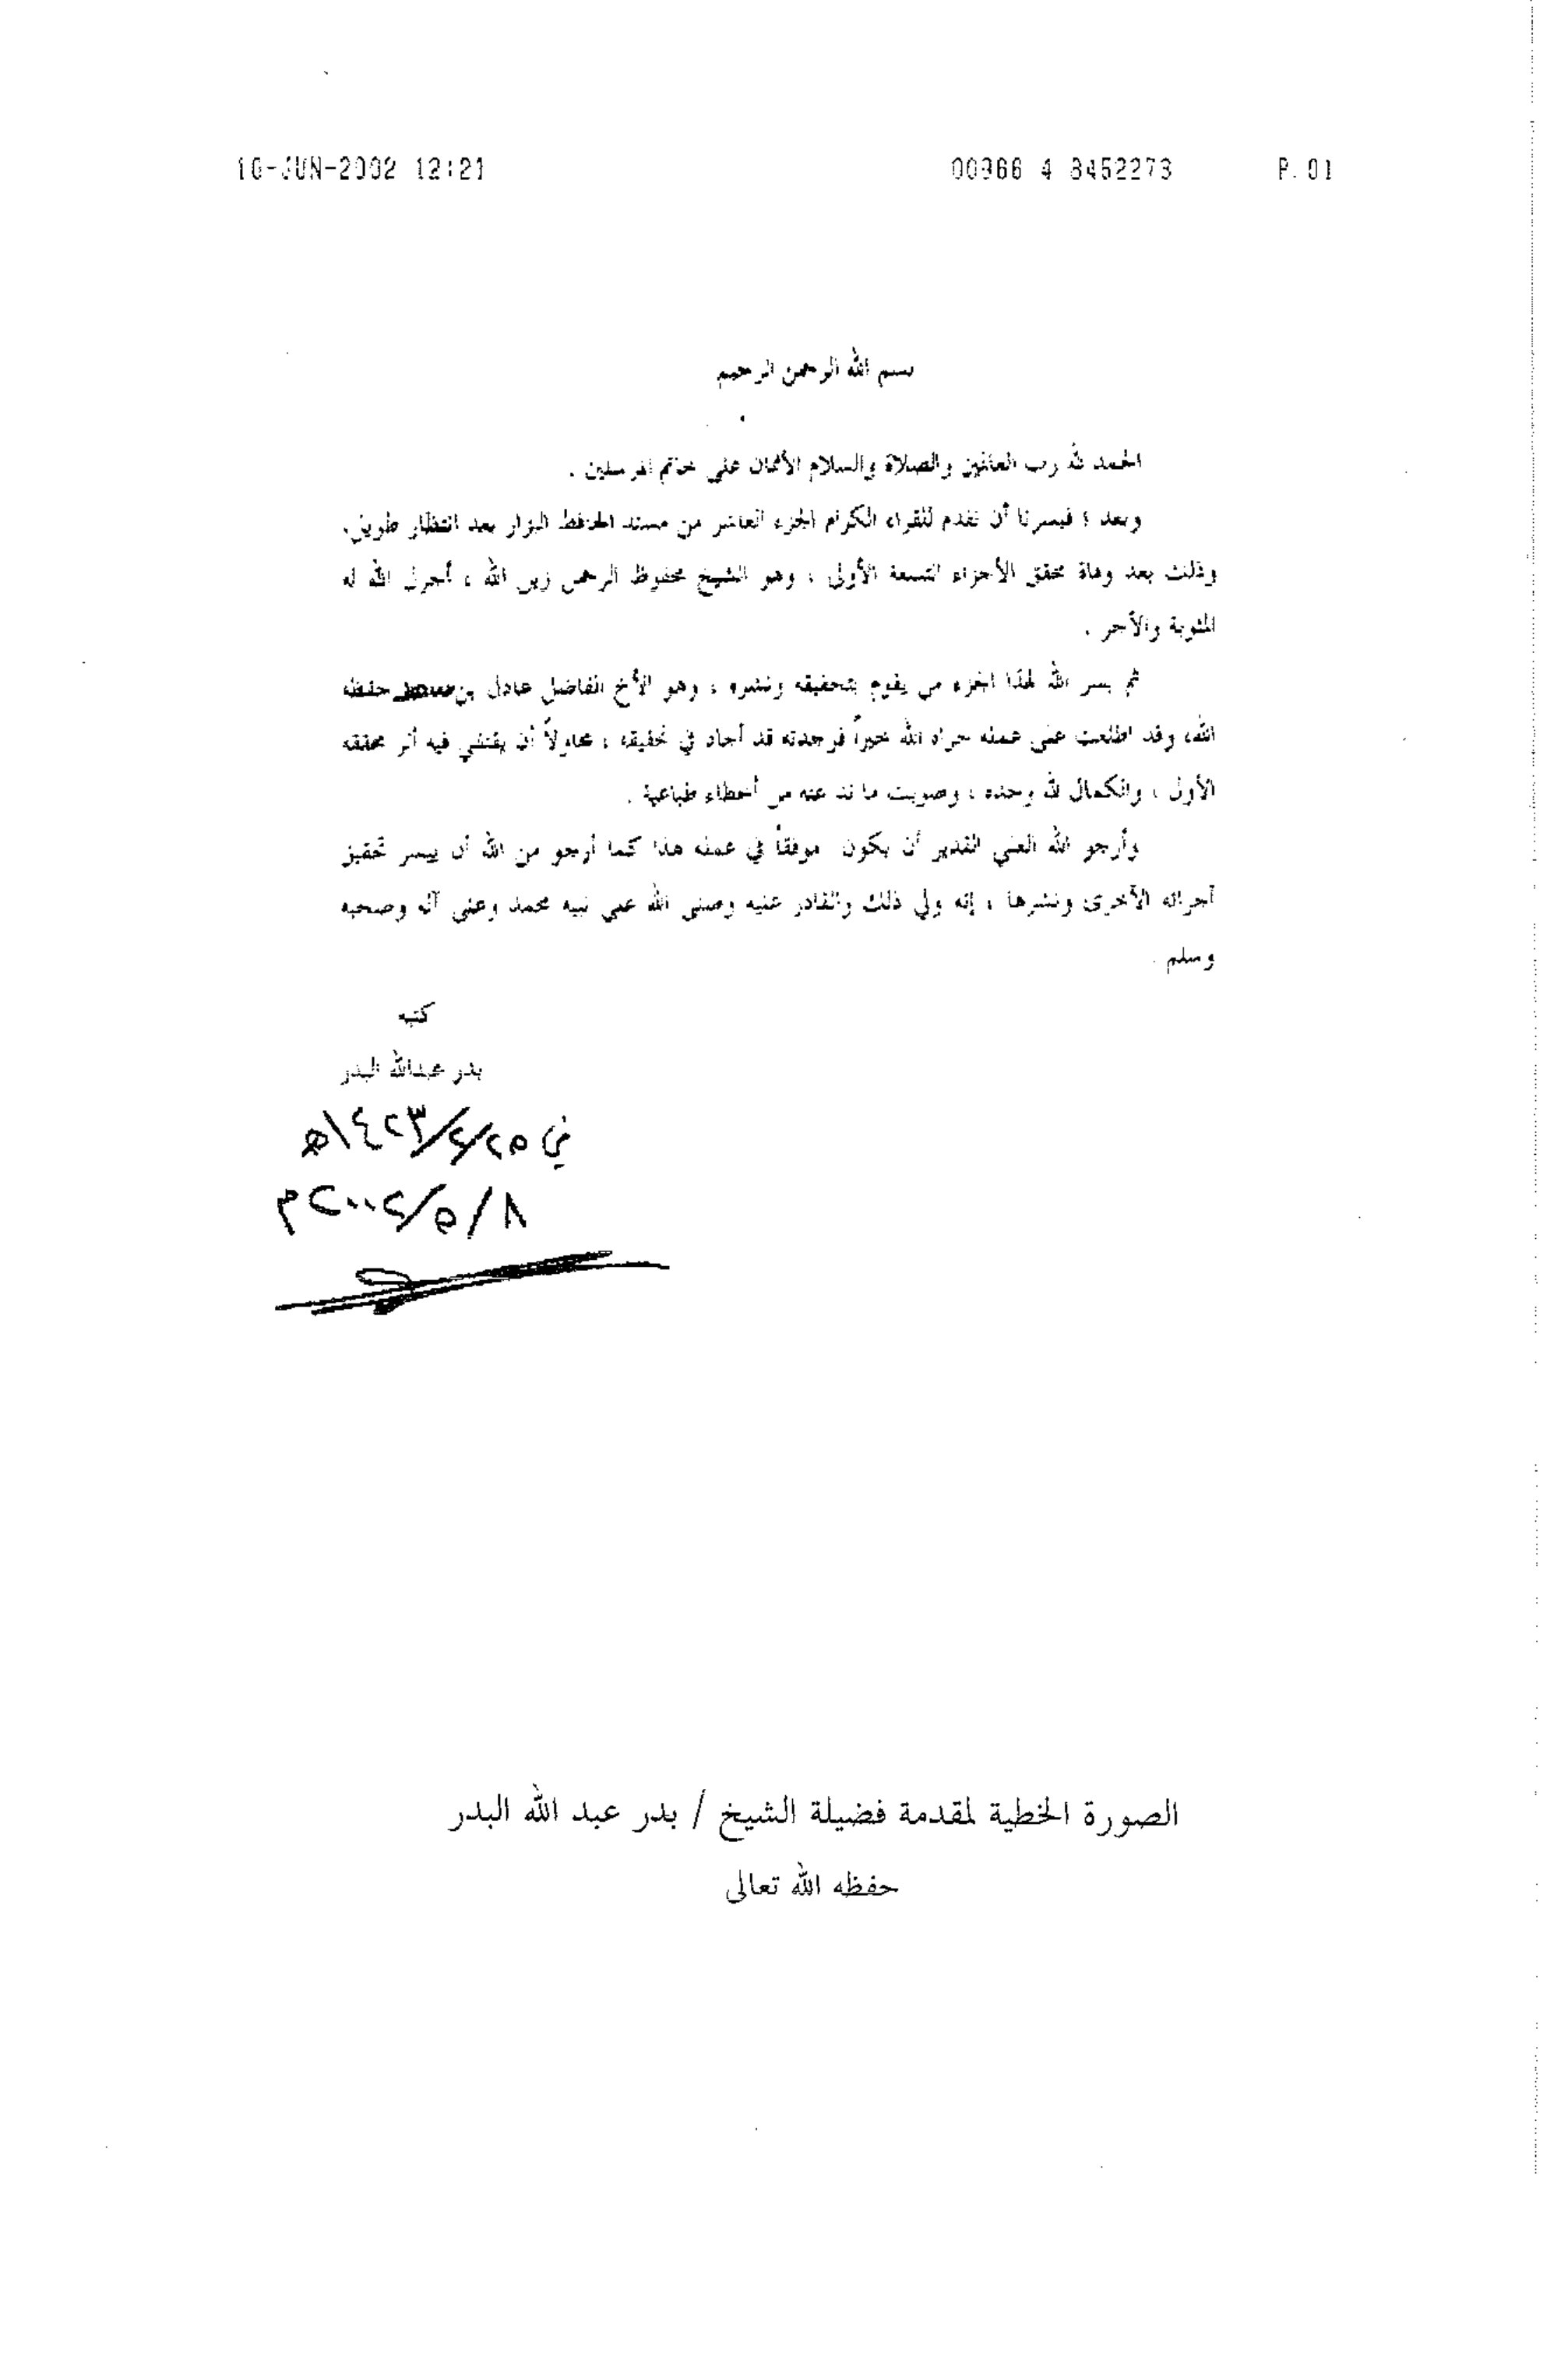 16-JUN-2002 12:21 00966 4 8452273 P.01
بسم الله الرحمن الرحيم
الحمد لله رب العالمين والصلاة والسلام الأتمان على خاتم المرسلين .
وبعد ؛ فيسرنا أن نقدم للقراء الكرام الجزء العاشر من مسند الحافظ البزار بعد انتظار طويل،
وذلك بعد وفاة محقق الأجزاء التسعة الأولى ، وهو الشيخ محفوظ الرحمن زين الله ، أجزل الله له
المثوبة والأجر .
ثم يسر الله لهذا الجزء من يقوم بتحقيقه ونشره ، وهو الأخ الفاضل عادل بن سعد حفظه
الله، وقد اطلعت على عمله جزاه الله خيراً فوجدته قد أجاد في تحقيقه ، محاولاً أن يقتفي فيه أثر محققه
الأول ، والكمال لله وحده ، وصوبت ما ند عنه من أخطاء طباعية .
وأرجو الله العلي القدير أن يكون موفقاً في عمله هذا كما أرجو من الله أن ييسر تحقيق
أجزائه الأخرى ونشرها ، إنه ولي ذلك والقادر عليه وصلى الله على نبيه محمد وعلى آله وصحبه
وسلم .
كتبه
بدر عبدالله البدر
في ٢٥/٢/١٤٢٣هـ
٨/٥/٢٠٠٢م
الصورة الخطية لمقدمة فضيلة الشيخ / بدر عبد الله البدر
حفظه الله تعالى